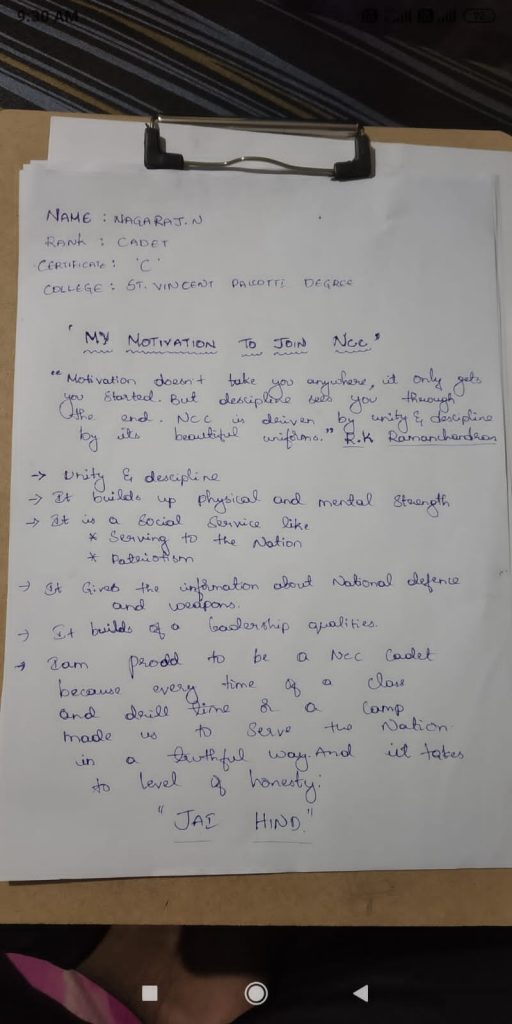 9:30 AM
NAME : NAGARAJ.N
RANK : CADET
CERTIFICATE : 'C'
COLLEGE : ST. VINCENT PALCOTTI DEGREE
"MY MOTIVATION TO JOIN NCC"
"Motivation doesn't take you anywhere, it only gets
you started. But descipline sees you through
the end. NCC is driven by unity & descipline
by its beautiful uniforms." R.K Ramanchandran
→ Unity & descipline
→ It builds up physical and mental strength
→ It is a Social Service like
* Serving to the Nation
* Patriotism
→ It Gives the information about National defence
and weapons.
→ It builds of a leadership qualities.
→ I am prodd to be a NCC Cadet
because every time of a class
and drill time & a Camp
made us to Serve the Nation
in a truthful way. And it takes
to level of honesty.
"JAI HIND."